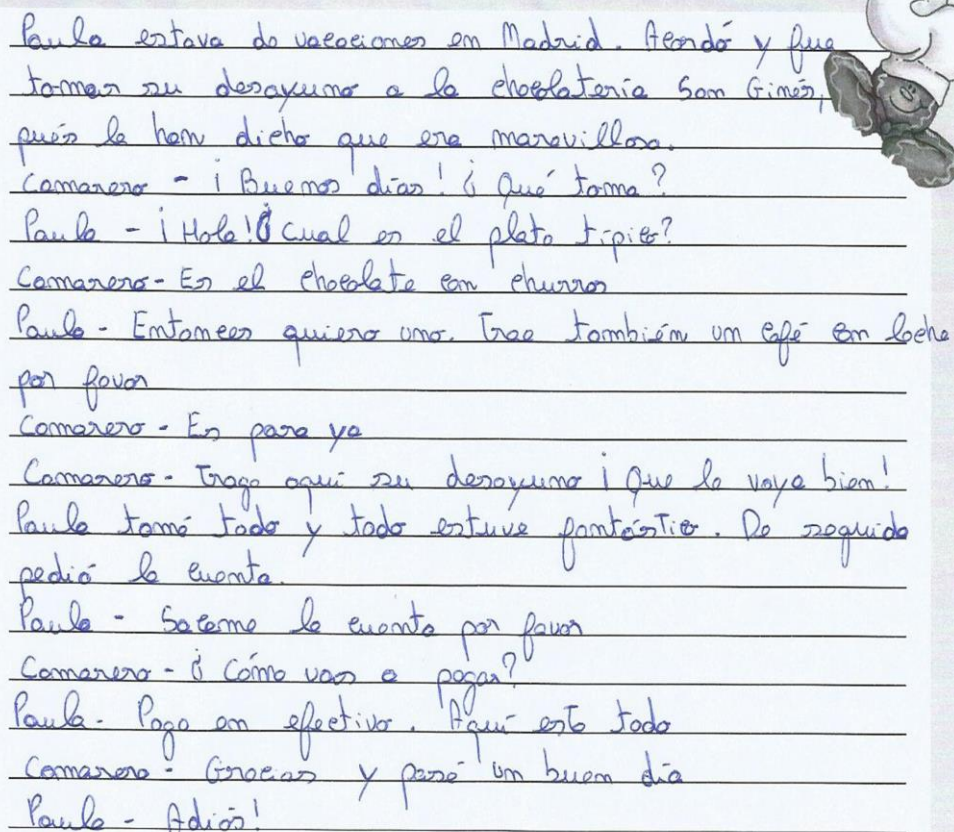 Paula estava de vacaciones en Madrid. Acordó y fue
tomar su desayuno a la chocolatería San Ginés,
pués la han dicho que era maravillosa.
Camarero - ¡Buenos días! ¿Qué toma?
Paula - ¡Hola! ¿Cual es el plato típico?
Camarero - Es el chocolate con churros
Paula - Entonces quiero uno. Trae también un café con leche
por favor
Camarero - Es para ya
Camarero - Trago aquí su desayuno ¡Que le vaya bien!
Paula tomó todo y todo estuve fantástico. De seguida
pedió la cuenta.
Paula - Sacame la cuenta por favor
Camarero - ¿Cómo vas a pagar?
Paula - Pago en efectivo. Aquí está todo
Camarero - Gracias y pasé un buen día
Paula - Adiós!